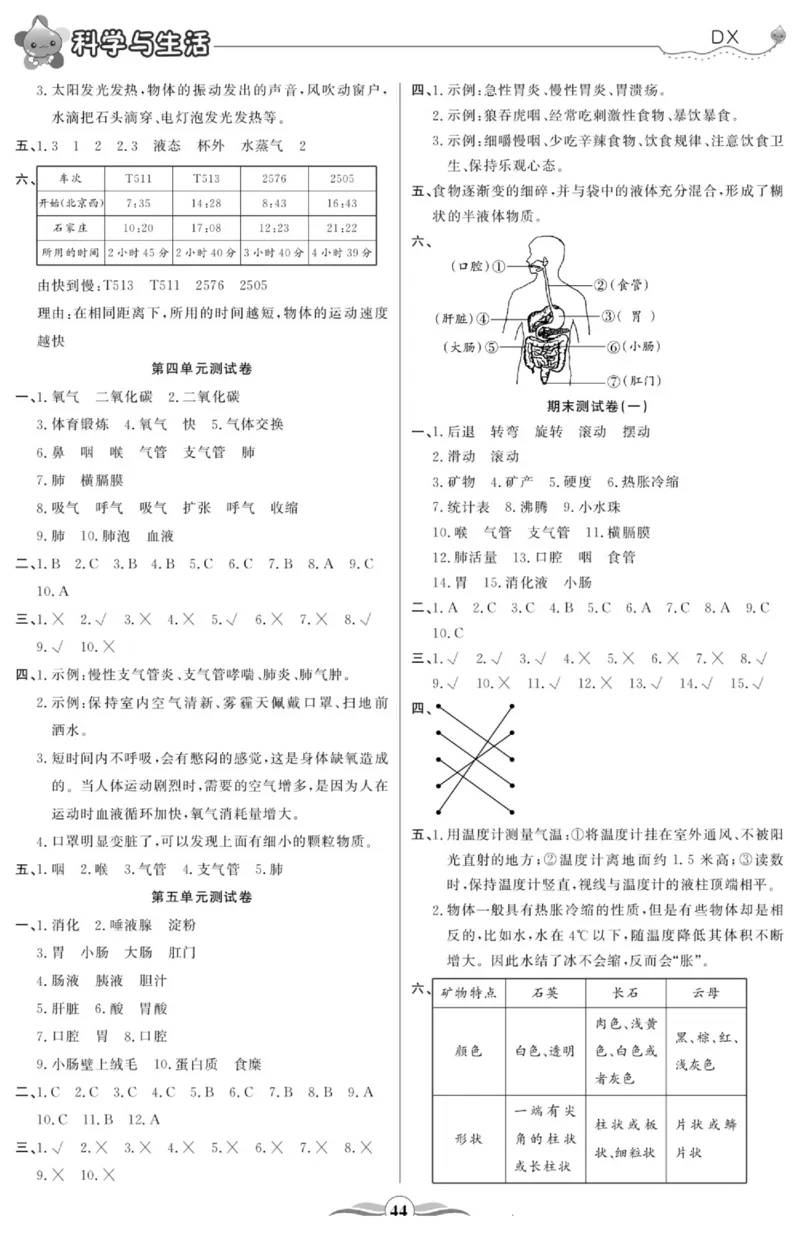 科学与生活
DX
3.太阳发光发热,物体的振动发出的声音,风吹动窗户,
水滴把石头滴穿、电灯泡发光发热等。
五、1.3 1 2 2.3 液态 杯外 水蒸气 2
六、
车次 T511 T513 2576 2505
开始(北京西) 7:35 14:28 8:43 16:43
石家庄 10:20 17:08 12:23 21:22
所用的时间 2小时45分 2小时40分 3小时40分 4小时39分
由快到慢:T513 T511 2576 2505
理由:在相同距离下,所用的时间越短,物体的运动速度
越快
第四单元测试卷
一、1.氧气 二氧化碳 2.二氧化碳
3.体育锻炼 4.氧气 快 5.气体交换
6.鼻 咽 喉 气管 支气管 肺
7.肺 横膈膜
8.吸气 呼气 吸气 扩张 呼气 收缩
9.肺 10.肺泡 血液
二、1.B 2.C 3.B 4.B 5.C 6.C 7.B 8.A 9.C
10.A
三、1.× 2.√ 3.× 4.× 5.√ 6.× 7.× 8.√
9.√ 10.×
四、1.示例:慢性支气管炎、支气管哮喘、肺炎、肺气肿。
2.示例:保持室内空气清新、雾霾天佩戴口罩、扫地前
洒水。
3.短时间内不呼吸,会有憋闷的感觉,这是身体缺氧造成
的。当人体运动剧烈时,需要的空气增多,是因为人在
运动时血液循环加快,氧气消耗量增大。
4.口罩明显变脏了,可以发现上面有细小的颗粒物质。
五、1.咽 2.喉 3.气管 4.支气管 5.肺
第五单元测试卷
一、1.消化 2.唾液腺 淀粉
3.胃 小肠 大肠 肛门
4.肠液 胰液 胆汁
5.肝脏 6.酸 胃酸
7.口腔 胃 8.口腔
9.小肠壁上绒毛 10.蛋白质 食糜
二、1.C 2.C 3.C 4.C 5.B 6.C 7.B 8.B 9.A
10.C 11.B 12.A
三、1.√ 2.× 3.× 4.× 5.× 6.× 7.× 8.×
9.× 10.×
四、1.示例:急性胃炎、慢性胃炎、胃溃疡。
2.示例:狼吞虎咽、经常吃刺激性食物、暴饮暴食。
3.示例:细嚼慢咽、少吃辛辣食物、饮食规律、注意饮食卫
生、保持乐观心态。
五、食物逐渐变的细碎,并与袋中的液体充分混合,形成了糊
状的半液体物质。
六、
(口腔)①
②(食管)
(肝脏)④
③( 胃 )
(大肠)⑤
⑥(小肠)
⑦(肛门)
期末测试卷(一)
一、1.后退 转弯 旋转 滚动 摆动
2.滑动 滚动
3.矿物 4.矿产 5.硬度 6.热胀冷缩
7.统计表 8.沸腾 9.小水珠
10.喉 气管 支气管 11.横膈膜
12.肺活量 13.口腔 咽 食管
14.胃 15.消化液 小肠
二、1.A 2.C 3.C 4.B 5.C 6.A 7.C 8.A 9.C
10.C
三、1.√ 2.√ 3.√ 4.× 5.× 6.× 7.× 8.√
9.√ 10.× 11.√ 12.× 13.√ 14.√ 15.√
四、
五、1.用温度计测量气温:①将温度计挂在室外通风、不被阳
光直射的地方;②温度计离地面约1.5米高;③读数
时,保持温度计竖直,视线与温度计的液柱顶端相平。
2.物体一般具有热胀冷缩的性质,但是有些物体却是相
反的,比如水,水在4℃以下,随温度降低其体积不断
增大。因此水结了冰不会缩,反而会“胀”。
六、
矿物特点 石英 长石 云母
颜色 白色、透明 肉色、浅黄色、白色或者灰色 黑、棕、红、浅灰色
形状 一端有尖角的柱状或长柱状 柱状或板状、细粒状 片状或鳞片状
44